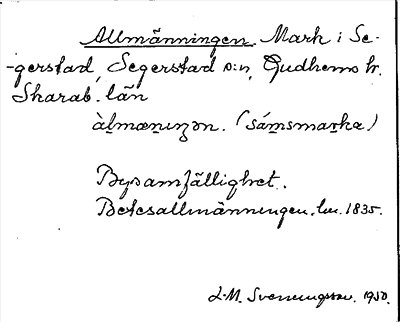 Allmänningen. Mark i Se-
-gerstad, Segerstad s:n, Gudhems hr.
Skarab. län
àlmænıŋən. (sámsmarka)
Bysamfällighet.
Betesallmänningen. lm. 1835.
L.M. Svenungsson. 1930.